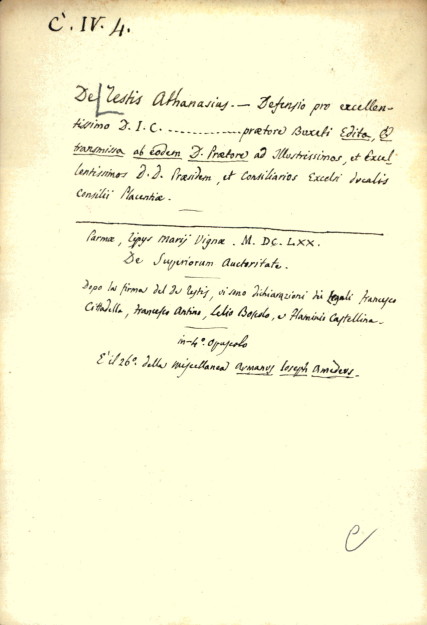 C. IV. 4.
De Testis Athanasius. — Defensio pro excellen-
tissimo D. I. C. ............... prætore Buxeti Edita, &
transmissa ab eodem D. Prætore ad Illustrissimos, et Excel
lentissimos D. D. Præsidem, et Consiliarios Excelsi ducalis
Consilii Placentiæ.
Parmæ, typys Marij Vignæ. M. DC. LXX.
De Superiorum Auctoritate.
Dopo la firma del De Testis, vi sono dichiarazioni dei legali Francesco
Cittadella, Francesco Antino, Lelio Boscolo, e Flaminio Castellina.
in-4º. opuscolo
E' il 26º. della miscellanea Asmanus Ioseph Amedeus.
C